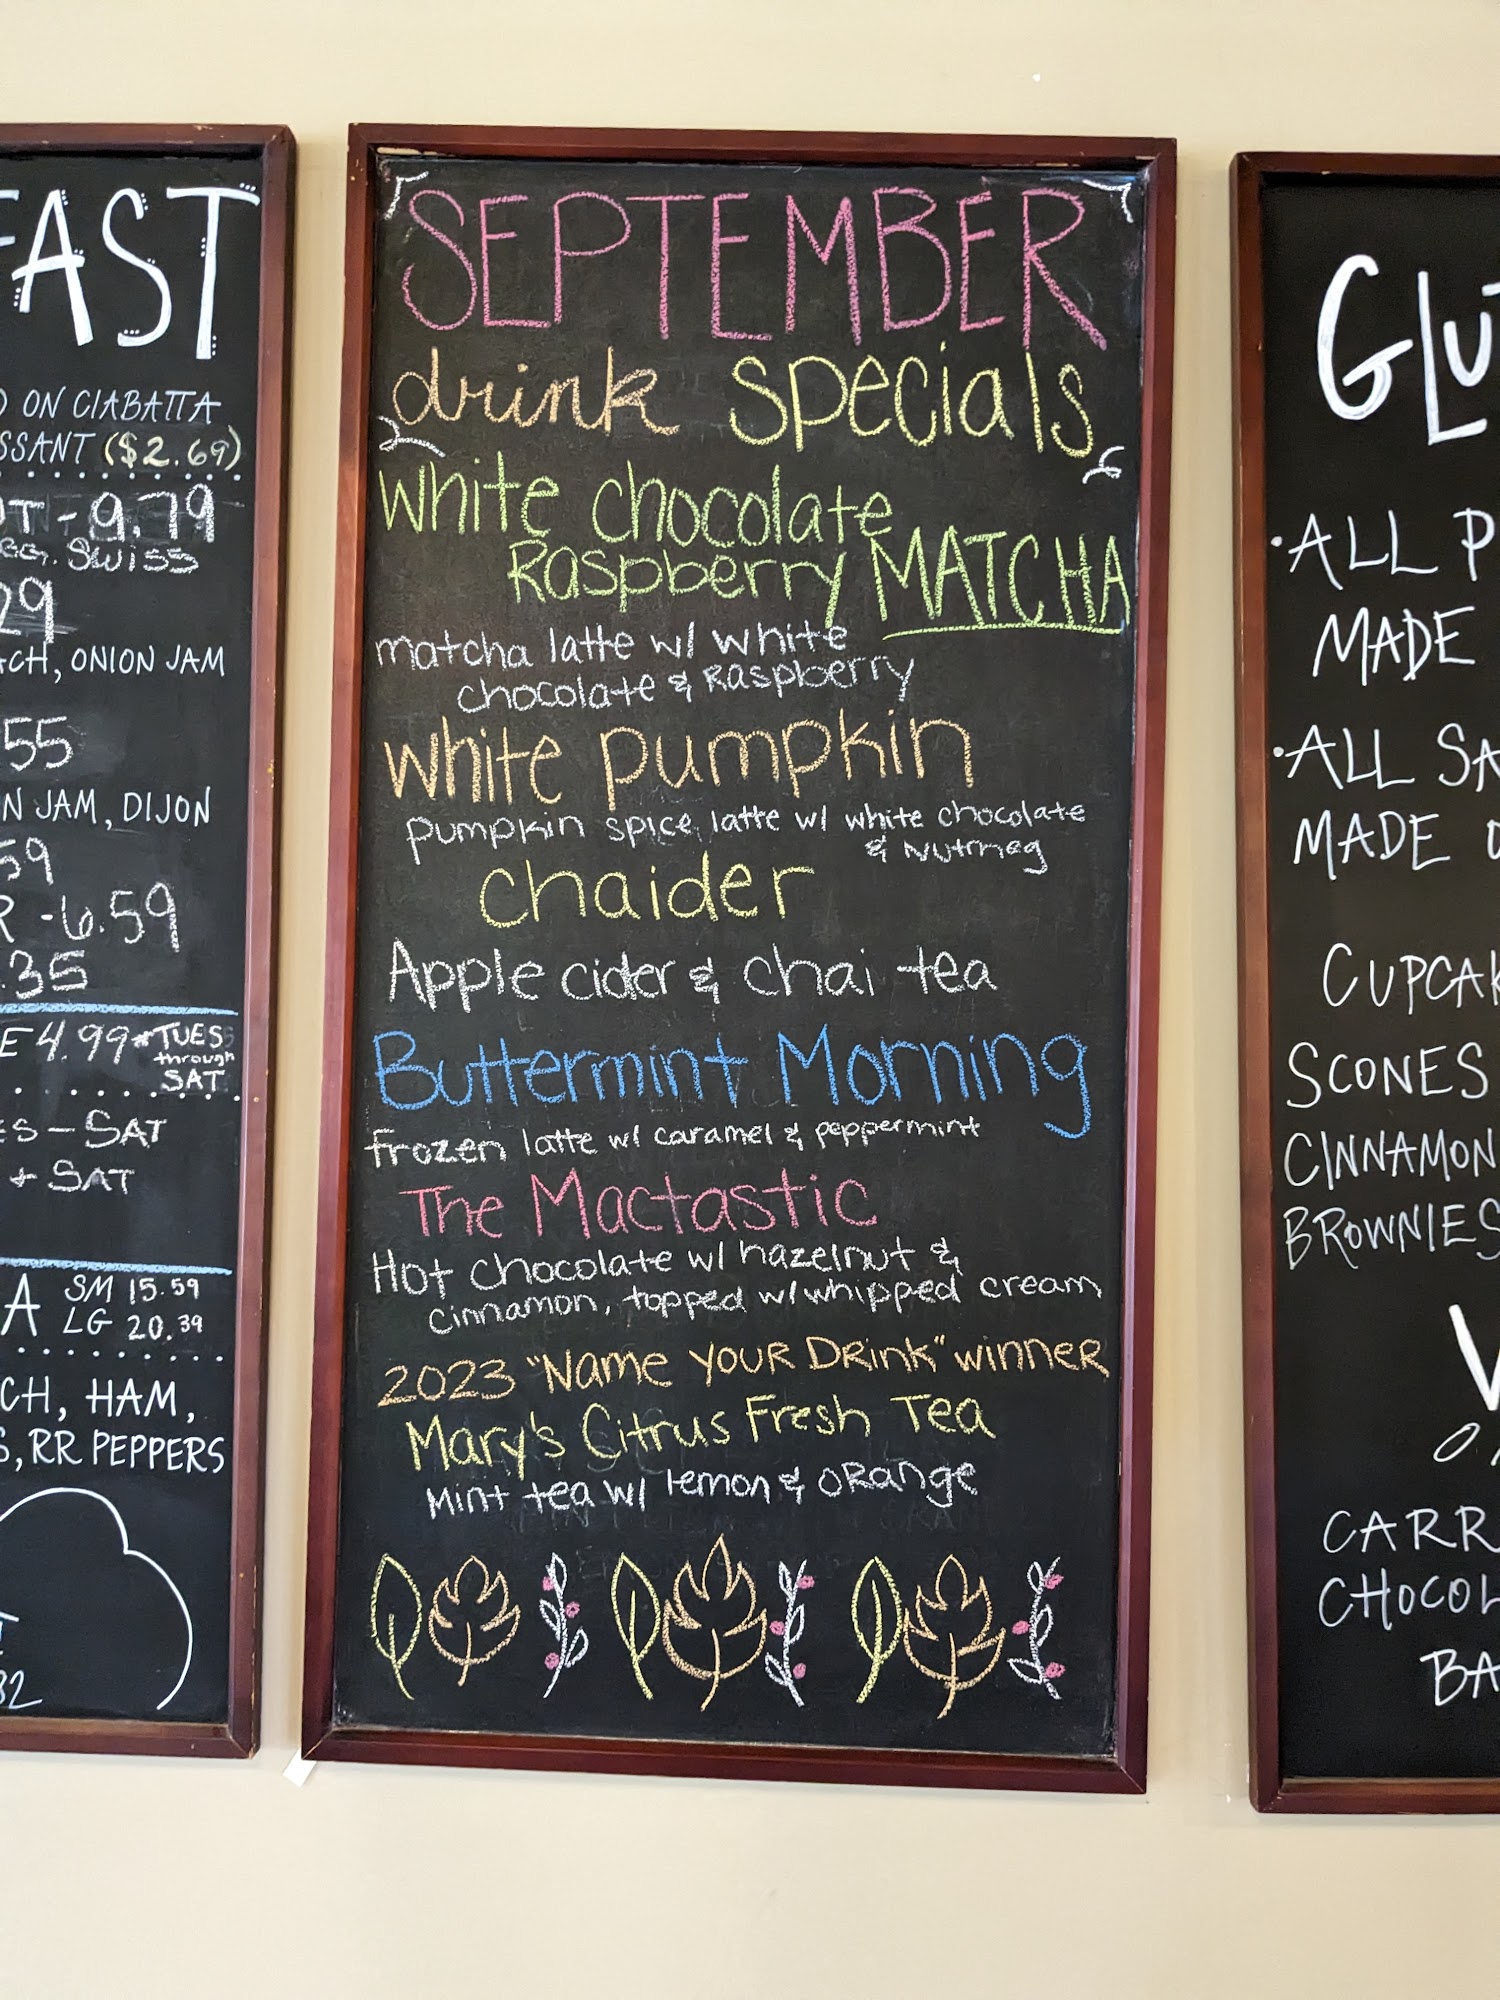 FAST
ON CIABATTA
SSANT ($2.69)
T - 9.79
GG. SWISS
29
ACH, ONION JAM
55
N JAM, DIJON
59
R - 6.59
.35
E 4.99 * TUES
through
SAT
ES - SAT
+ SAT
A SM 15.59
LG 20.39
CH, HAM,
S, RR PEPPERS
T
82
SEPTEMBER
drink specials
white chocolate
Raspberry MATCHA
matcha latte w/ white
chocolate & Raspberry
white pumpkin
pumpkin spice latte w/ white chocolate
& Nutmeg
chaider
Apple cider & chai tea
Buttermint Morning
frozen latte w/ caramel & peppermint
The Mactastic
Hot chocolate w/ hazelnut &
cinnamon, topped w/ whipped cream
2023 "Name your Drink" winner
Mary's Citrus Fresh Tea
Mint tea w/ lemon & orange
GLU
• ALL P
MADE
• ALL SA
MADE O
CUPCAK
SCONES
CINNAMON
BROWNIES
V
CARR
CHOCOL
BA